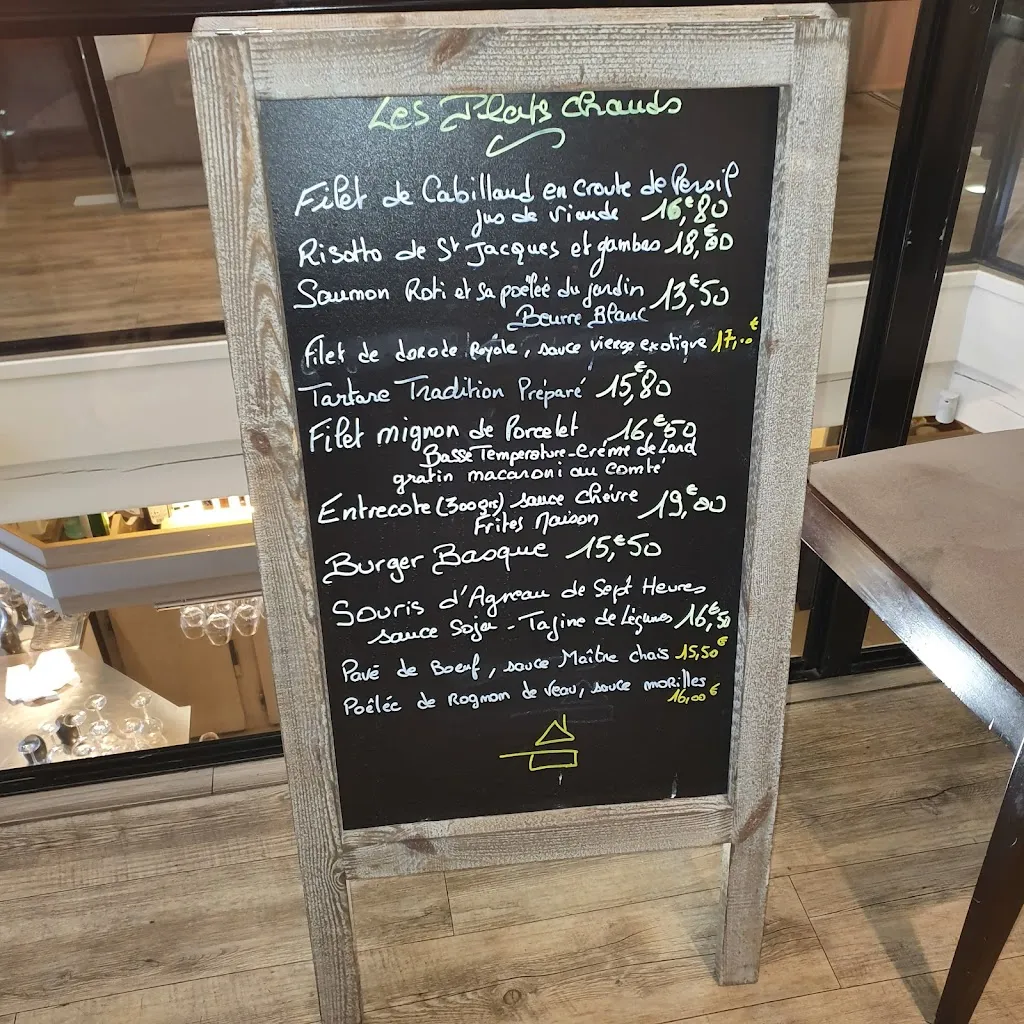 Les Plats chauds
Filet de Cabillaud en croute de Persil
Jus de viande 16€80
Risotto de St Jacques et gambas 18,€00
Saumon Roti et sa poêlée du jardin 13€50
Beurre Blanc
Filet de dorade Royale, sauce vierge exotique 17,00€
Tartare Tradition Préparé 15,€80
Filet mignon de Porcelet 16,€50
Basse Temperature - Crème de Lard
gratin macaroni au comté
Entrecote (300grs) sauce chèvre 19,€00
Frites Maison
Burger Basque 15,€50
Souris d'Agneau de Sept Heures
sauce Soja - Tajine de Légumes 16,€50
Pavé de Boeuf, sauce Maître chais 15,50€
Poêlée de Rognon de Veau, sauce morilles
16,00€